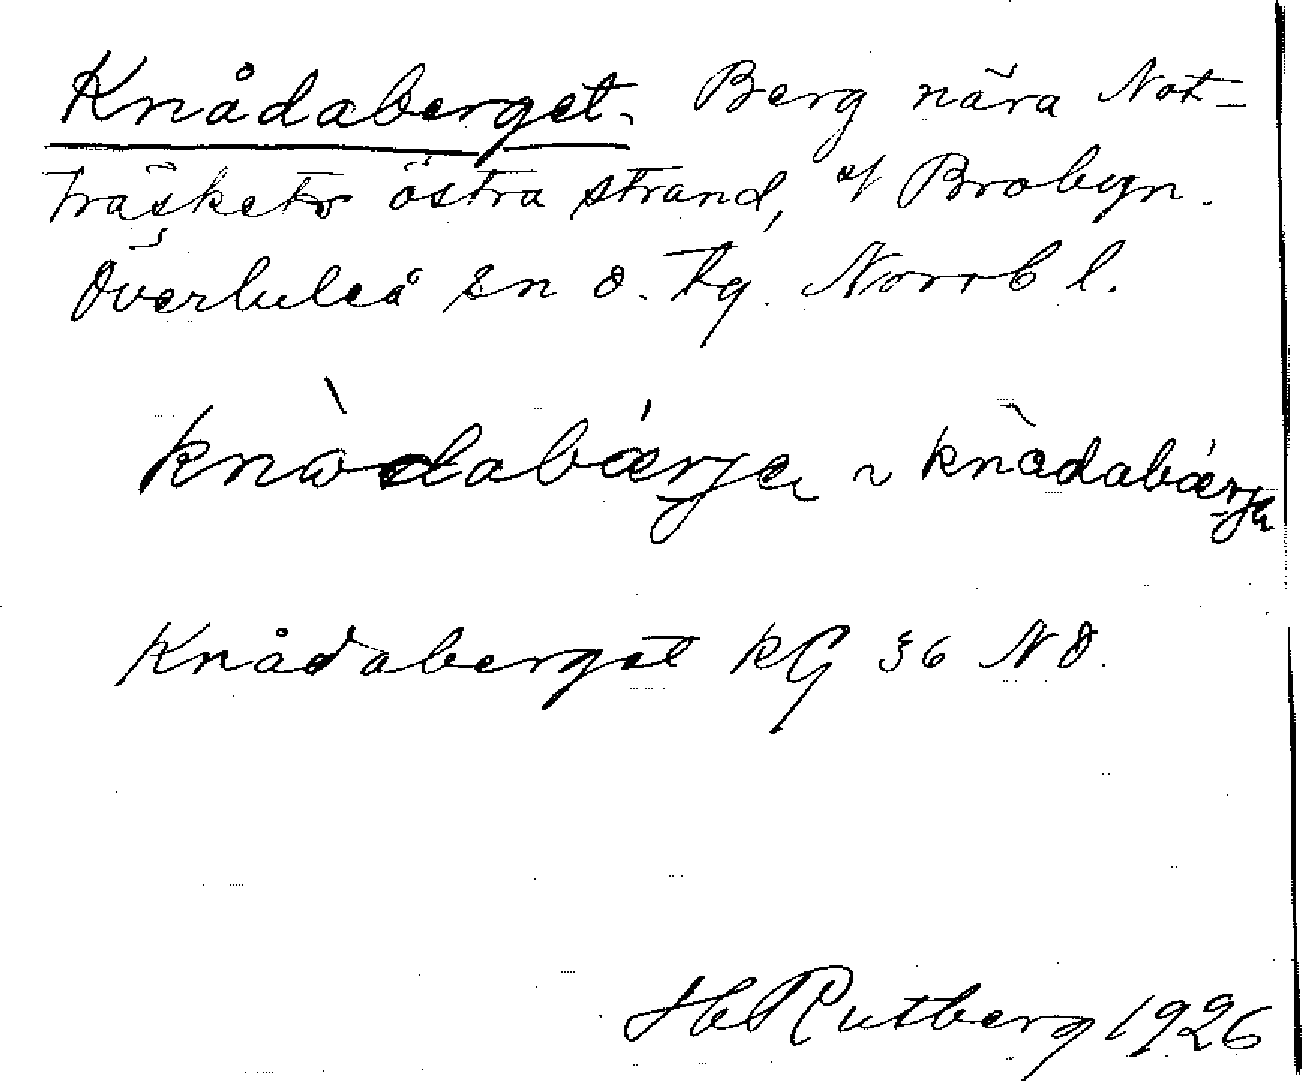 Knådaberget. Berg nära Not-
träskets östra strand, o/ Brobyn.
Överluleå sn o. tg. Norrb l.
knòdabǽrjɐ ~ knòdabǽrjɐ
Knådaberget KG 36 NO.
H Rutberg 1926